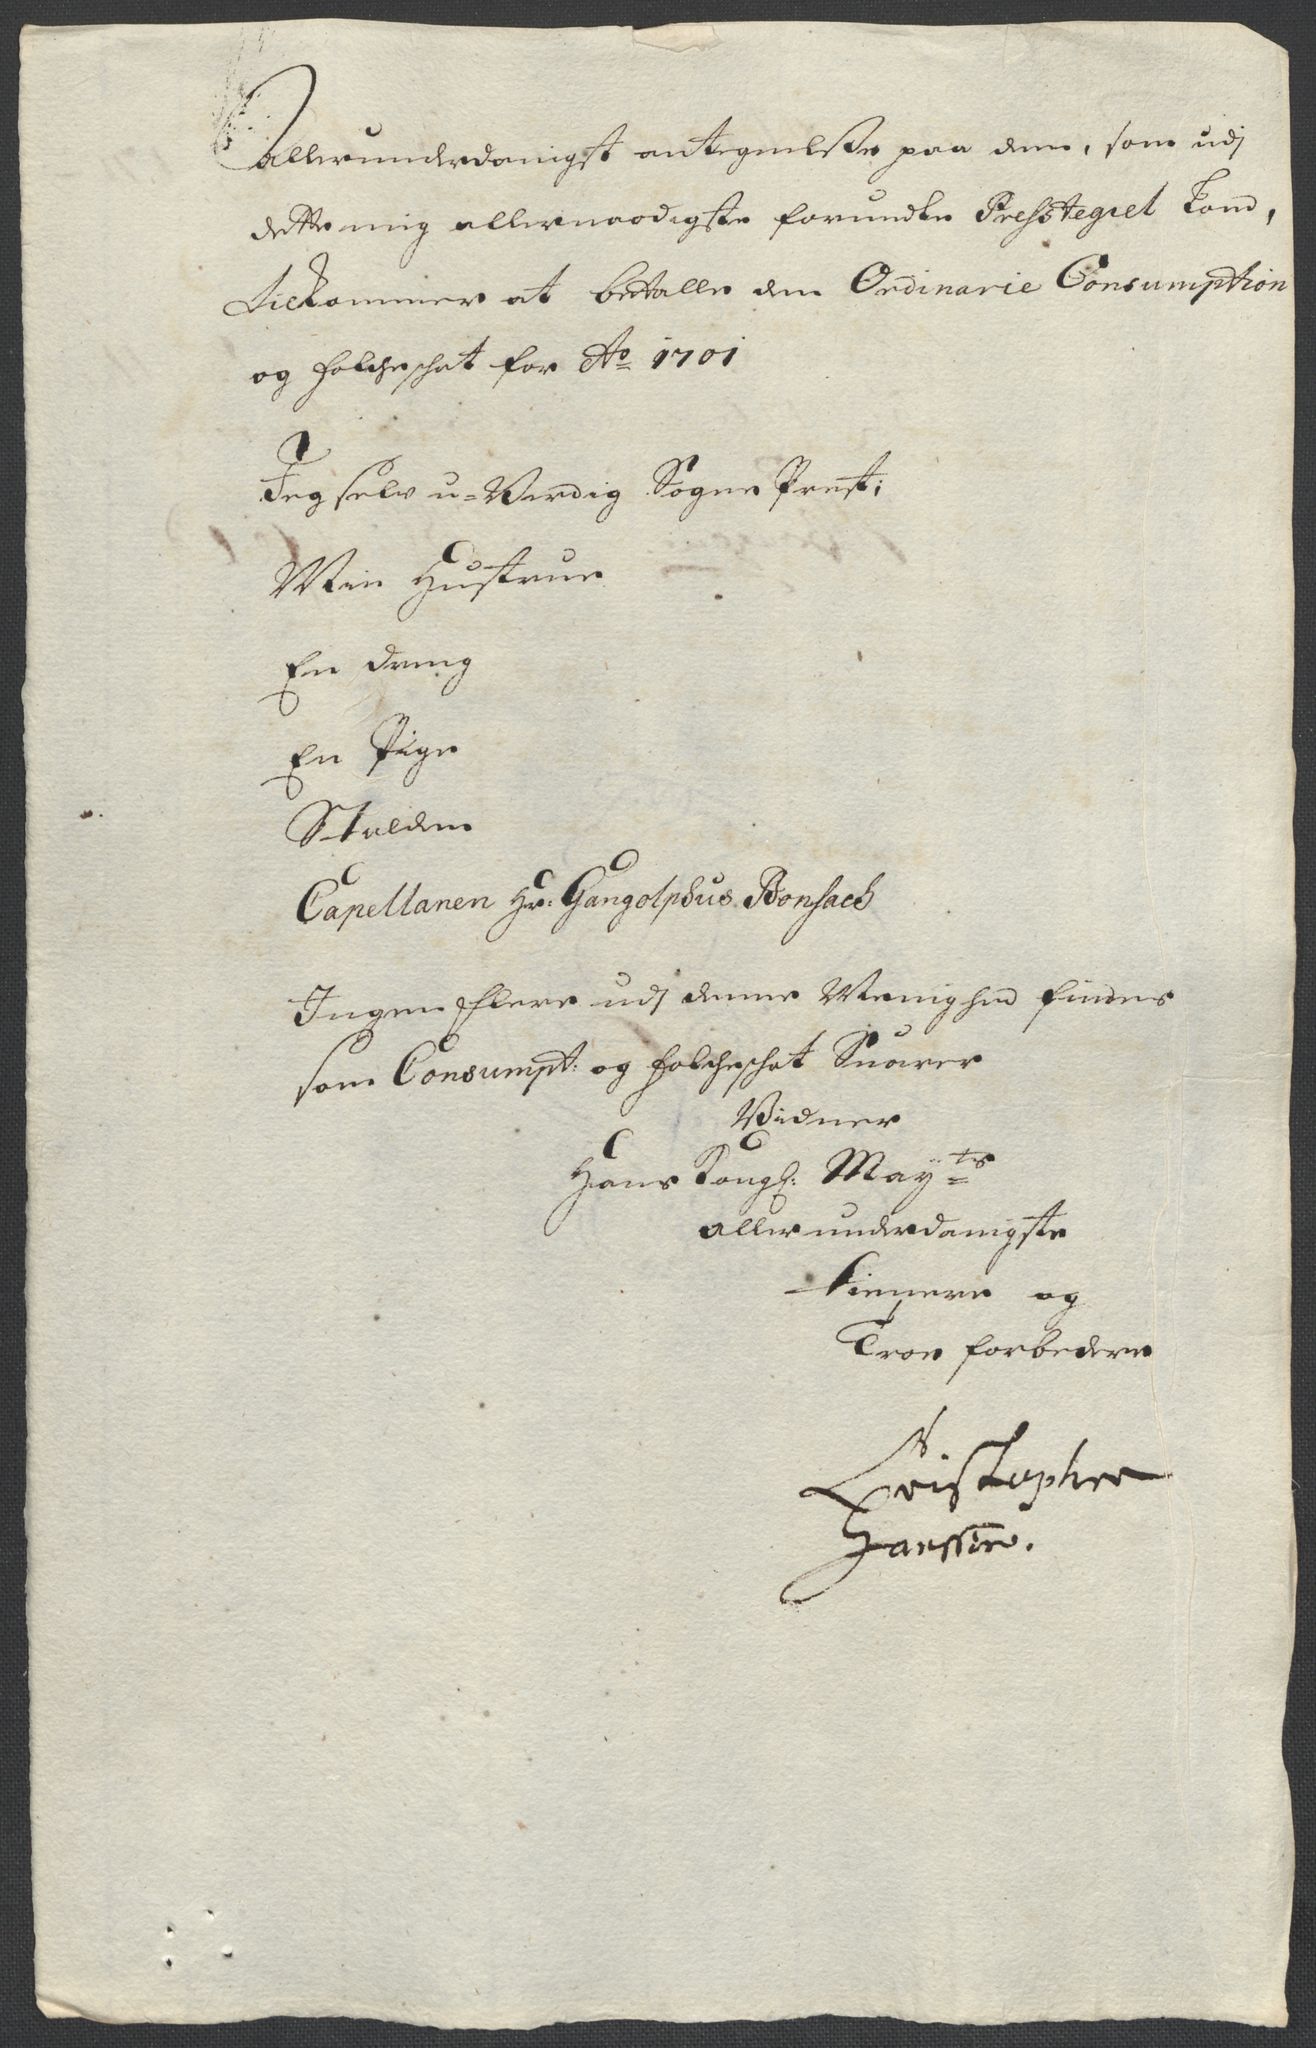 Allerunderdanigst antegnelse paa dem, som udj
dette mig allernaadigste forundte Prestegiel
tilkommer at betalle den Ordinarie Consumption
og folcheschat for Ao 1701
Jeg selv u-Verdig Sogne Prest;
Min Hustrue
En dreng
En Pige
Capellanen Hr: Gangolphus Bonsach
Ingen flere udj denne Menighed findes
som Consumpt: og folcheschat Suarer
Vidner
Hans Kongl: Mayts
allerunderdanigste
tienere og
Troe forbedere
Christopher
Hanssen.